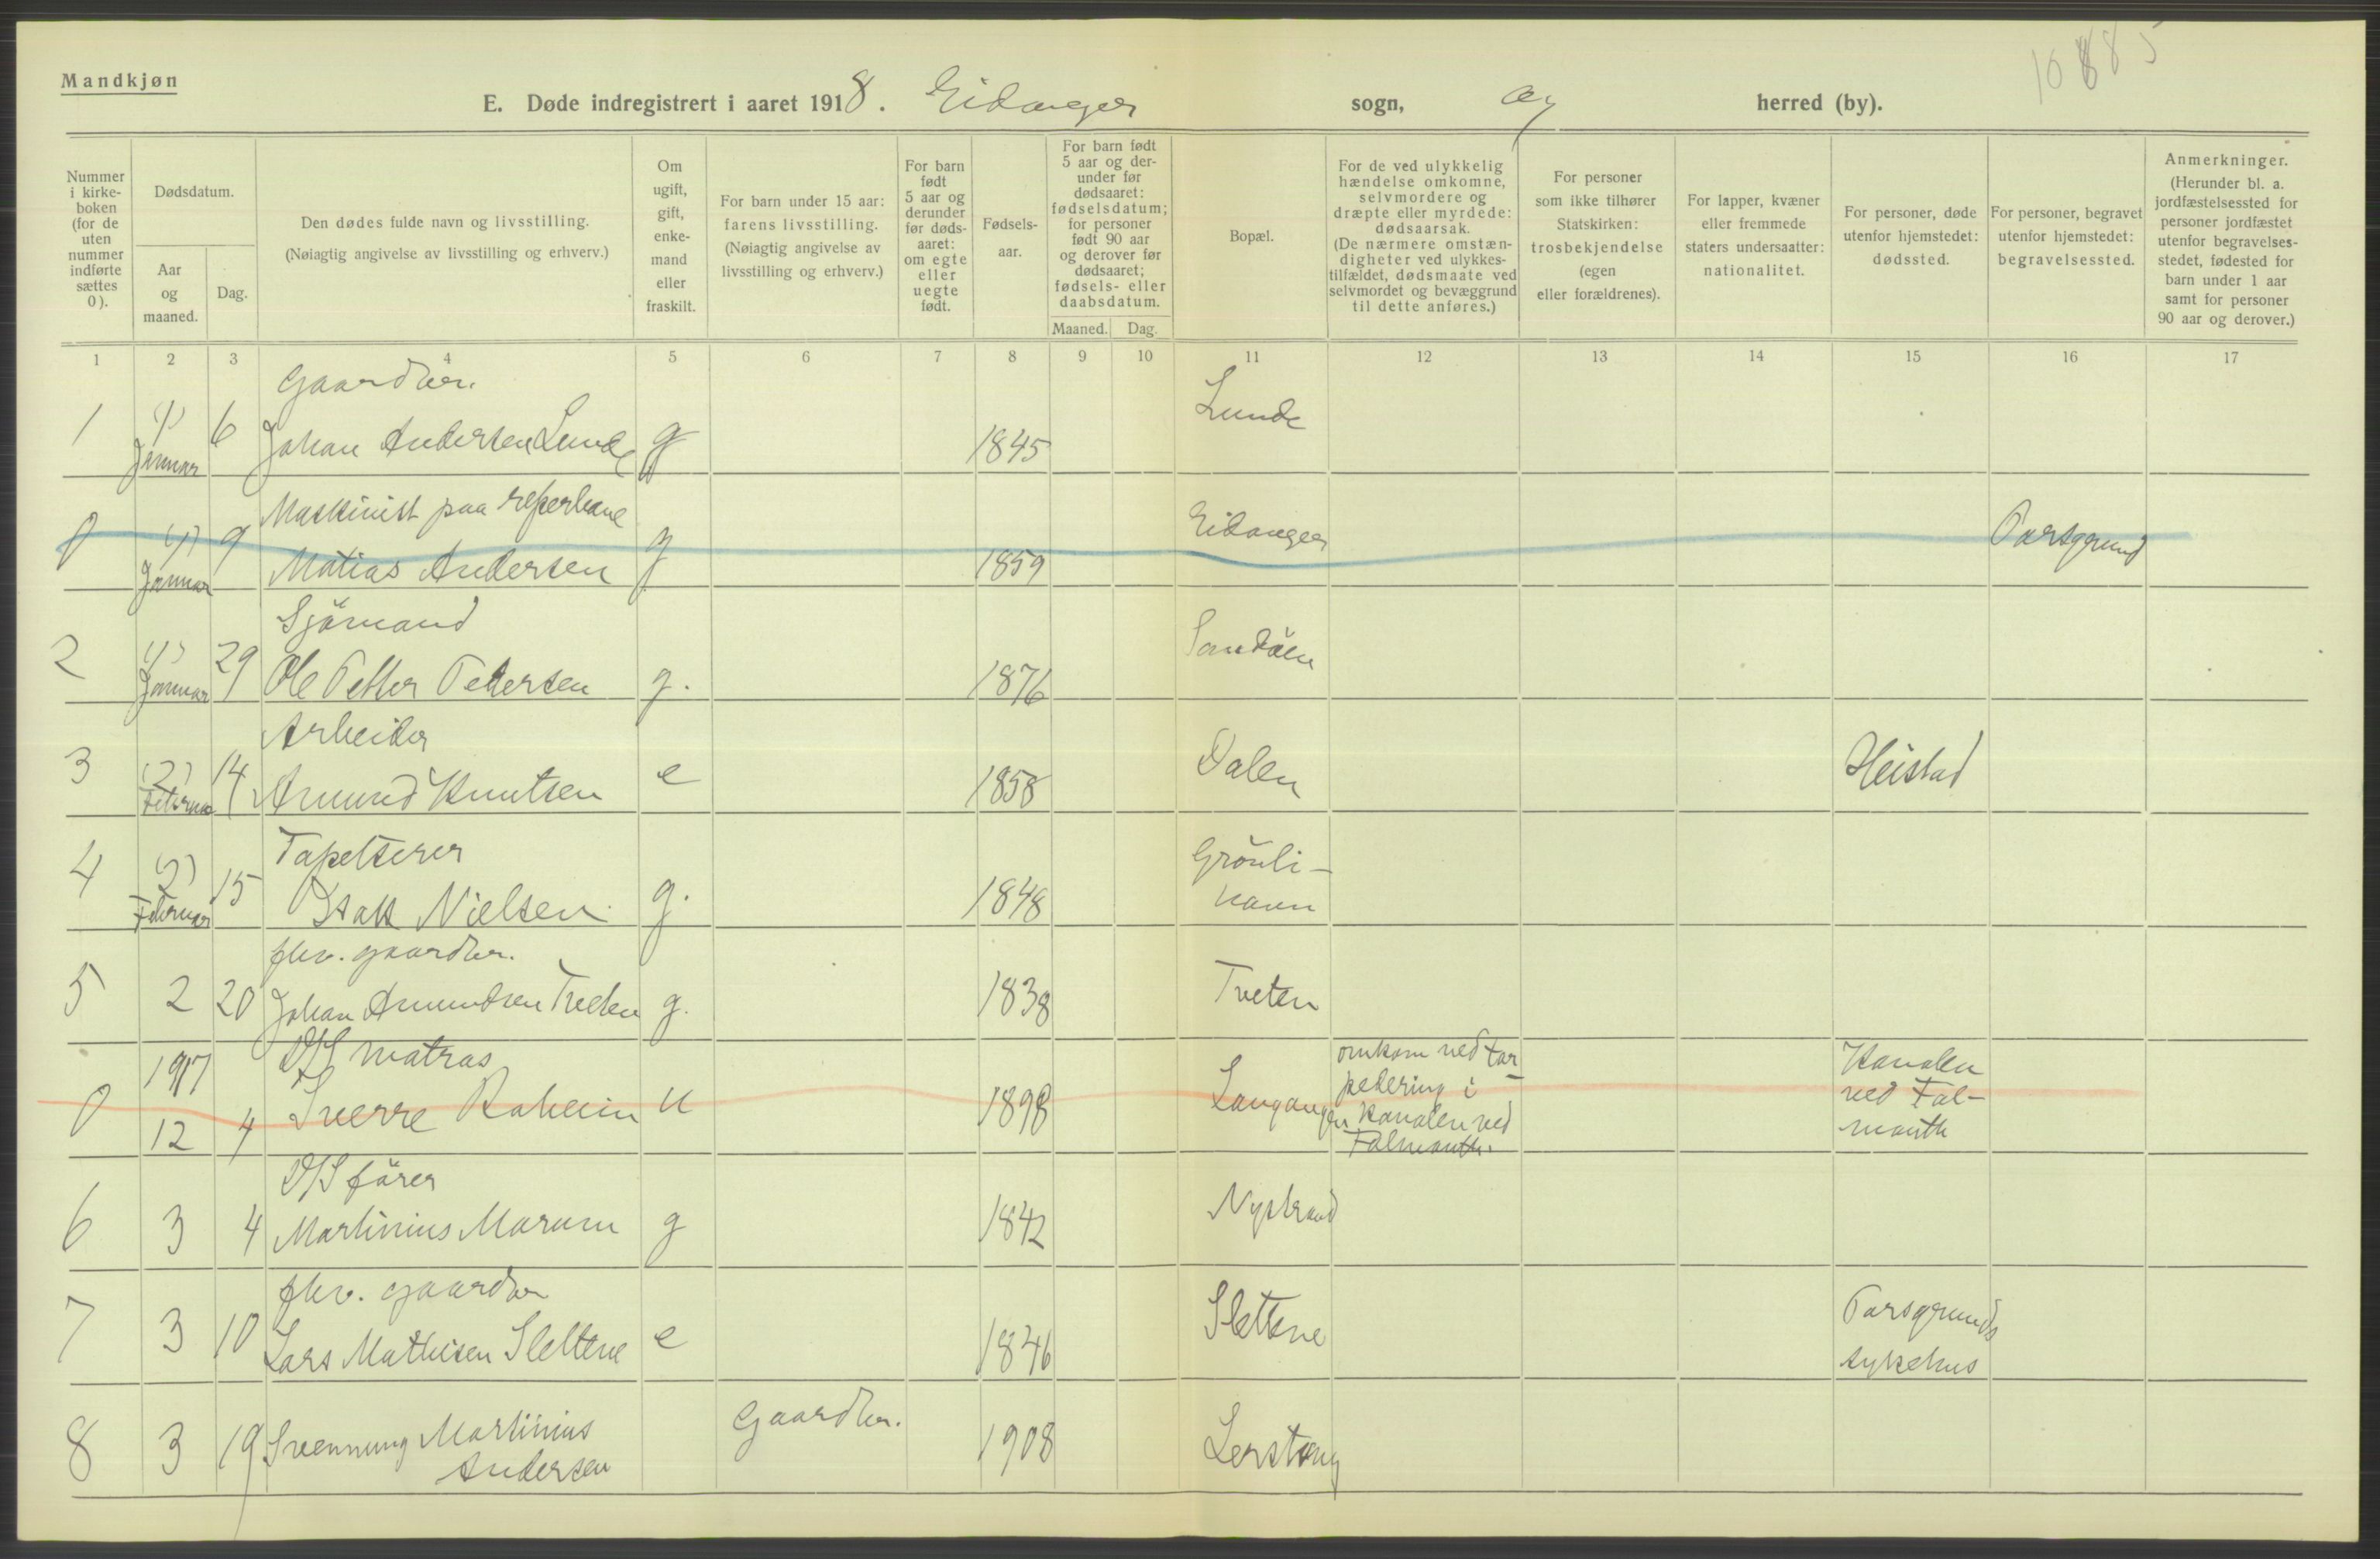 Mandkjøn
10885
E. Døde indregistrert i aaret 1918. Eidanger sogn, og herred (by).
Nummer i kirke-boken (for de uten nummer indførte sættes 0).
Dødsdatum.
Aar og maaned.
Dag.
Den dødes fulde navn og livsstilling.
(Nøiagtig angivelse av livsstilling og erhverv.)
Om ugift, gift, enke-mand eller fraskilt.
For barn under 15 aar: farens livsstilling.
(Nøiagtig angivelse av livsstilling og erhverv.)
For barn født 5 aar og derunder før døds-aaret: om egte eller uegte født.
Fødsels-aar.
For barn født 5 aar og der-under før dødsaaret: fødselsdatum; for personer født 90 aar og derover før dødsaaret; fødsels- eller daabsdatum.
Maaned. Dag.
Bopæl.
For de ved ulykkelig hændelse omkomne, selvmordere og dræpte eller myrdede: dødsaarsak.
(De nærmere omstæn-digheter ved ulykkes-tilfældet, dødsmaate ved selvmordet og bevæggrund til dette anføres.)
For personer som ikke tilhører Statskirken: trosbekjendelse (egen eller forældrenes).
For lapper, kvæner eller fremmede staters undersaatter: nationalitet.
For personer, døde utenfor hjemstedet: dødssted.
For personer, begravet utenfor hjemstedet: begravelsessted.
Anmerkninger.
(Herunder bl. a. jordfæstelsessted for personer jordfæstet utenfor begravelses-stedet, fødested for barn under 1 aar samt for personer 90 aar og derover.)
1 2 3 4 5 6 7 8 9 10 11 12 13 14 15 16 17
Gaardbr.
1 (1) Januar 6 Johan Andersen Lunde g 1845 Lunde
Maskinist paa reperbane
0 (1) Januar 9 Matias Andersen g 1859 Eidanger Porsgrund
Sjömand
2 (1) Januar 29 Ole Petter Pettersen g. 1876 Sandöen
Arbeider
3 (2) Februar 14 Amund Knutsen e 1858 Dalen Heistad
Tapetserer
4 (2) Februar 15 Isak Nielsen g. 1848 Grönli-
havn
fhv. gaardbr.
5 2 20 Johan Amundsen Tveten g. 1838 Tveten
D/S matros
0 1917 12 4 Sverre Raheim u 1898 Langangen
omkom ved tor-
pedering i
Kanalen ved
Falmouth.
Kanalen
ved Fal-
mouth
D/S förer
6 3 4 Martinius Marum g 1842 Nystrand
fhv. gaardbr
7 3 10 Lars Mathisen Slettene e 1846 Slettene
Porsgrunds
sykehus
8 3 19 Svennung Martinius
Andersen
Gaardbr. 1908 Lerstang